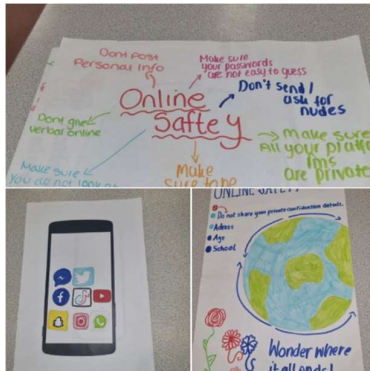 Dont Post
Personal Info
Make sure
your passwords
are not easy to guess
Don't send /
ask for
nudes
Online
Saftey
Dont give
verbal online
Make sure
All your platfo
rms
are private
Make sure
you do not look at
Make
sure to be
ONLINE SAFETY
Do not share your private confidention details.
Adress
Age
School
Wonder where
it all ends!